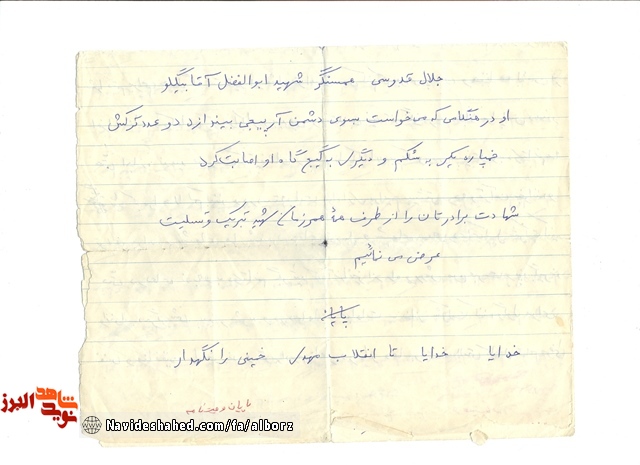 جلال قدوسی همسنگر شهید ابوالفضل آقابیگلو
او در هنگامی که می‌خواست بسوی دشمن آرپیجی بیندازد دو عدد ترکش
خمپاره یکی به شکم و دیگری به گیجگاه او اصابت کرد
شهادت برادرتان را از طرف همهٔ همرزمان شهید تبریک و تسلیت
عرض می نمائیم
پایان
خدایا خدایا تا انقلاب مهدی خمینی را نگهدار
پایان وصیت نامه
نوید شاهد البرز
Navideshahed.com/fa/alborz